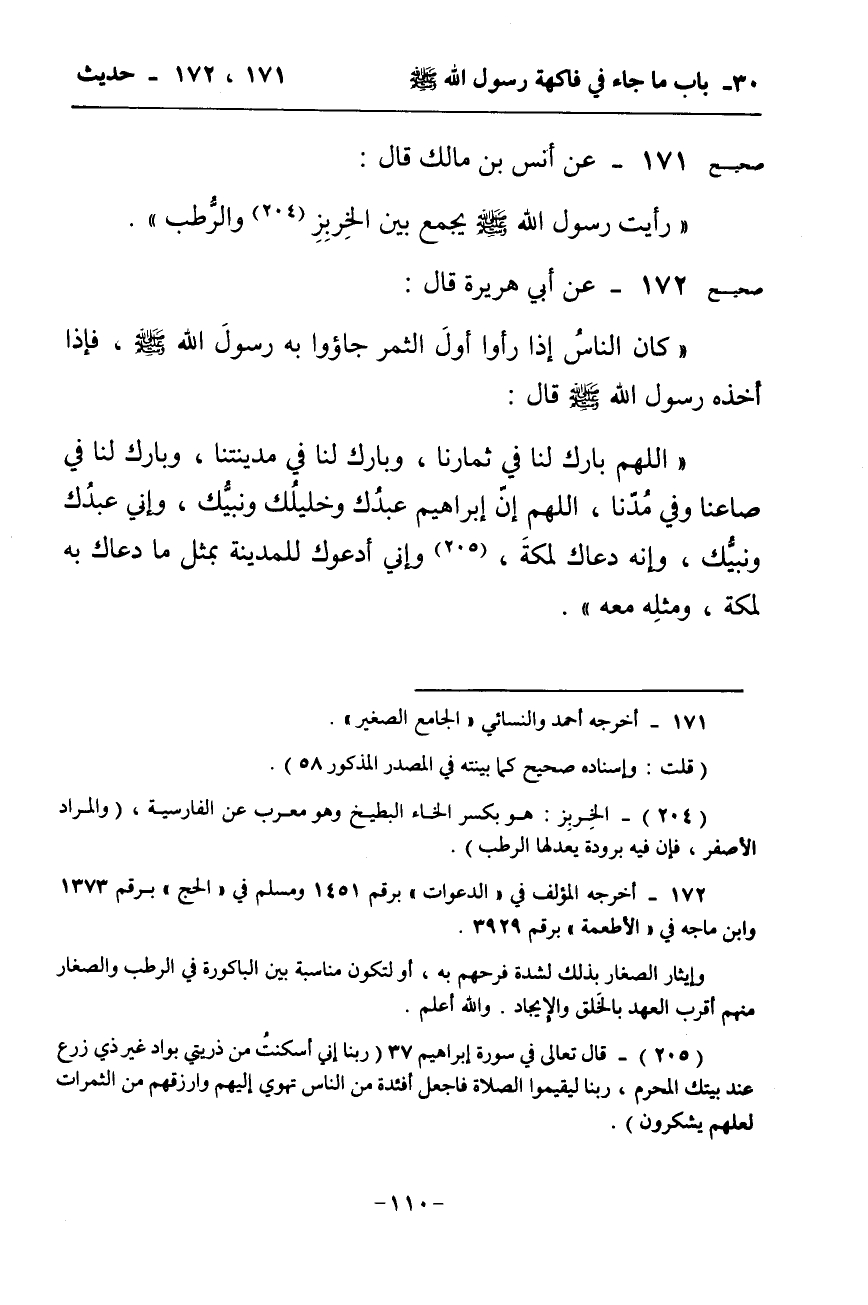 ٣٠- باب ما جاء في فاكهة رسول الله ﷺ ١٧١ ، ١٧٢ - حديث
صحيـح ١٧١ - عن أنس بن مالك قال :
« رأيت رسول الله ﷺ يجمع بين الخِربِزِ (٢٠٤) والرُّطب » .
صحيـح ١٧٢ - عن أبي هريرة قال :
« كان الناسُ إذا رأوا أولَ الثمر جاؤوا به رسولَ الله ﷺ ، فإذا
أخذه رسول الله ﷺ قال :
« اللهم بارك لنا في ثمارنا ، وبارك لنا في مدينتنا ، وبارك لنا في
صاعنا وفي مُدّنا ، اللهم إنّ إبراهيم عبدُك وخليلُك ونبيُّك ، وإني عبدُك
ونبيُّك ، وإنه دعاك لمكةَ ، (٢٠٥) وإني أدعوك للمدينة بمثل ما دعاك به
لمكة ، ومثلِه معه » .
١٧١ - أخرجه أحمد والنسائي « الجامع الصغير » .
( قلت : وإسناده صحيح كما بينته في المصدر المذكور ٥٨ ) .
( ٢٠٤ ) - الخِـربِز : هـو بكسر الخـاء البطيـخ وهو معـرب عن الفارسيـة ، ( والمـراد
الأصفر ، فإن فيه برودة يعدلها الرطب ) .
١٧٢ - أخرجه المؤلف في « الدعوات » برقم ١٤٥١ ومسلم في « الحج » بـرقم ١٣٧٣
وابن ماجه في « الأطعمة » برقم ٣٩٢٩ .
وإيثار الصغار بذلك لشدة فرحهم به ، أو لتكون مناسبة بين الباكورة في الرطب والصغار
منهم أقرب العهد بالخَلق والإيجاد . والله أعلم .
( ٢٠٥ ) - قال تعالى في سورة إبراهيم ٣٧ ( ربنا إني أسكنتُ من ذريتي بواد غير ذي زرع
عند بيتك المحرم ، ربنا ليقيموا الصلاة فاجعل أفئدة من الناس تهوي إليهم وارزقهم من الثمرات
لعلهم يشكرون ) .
-١١٠-